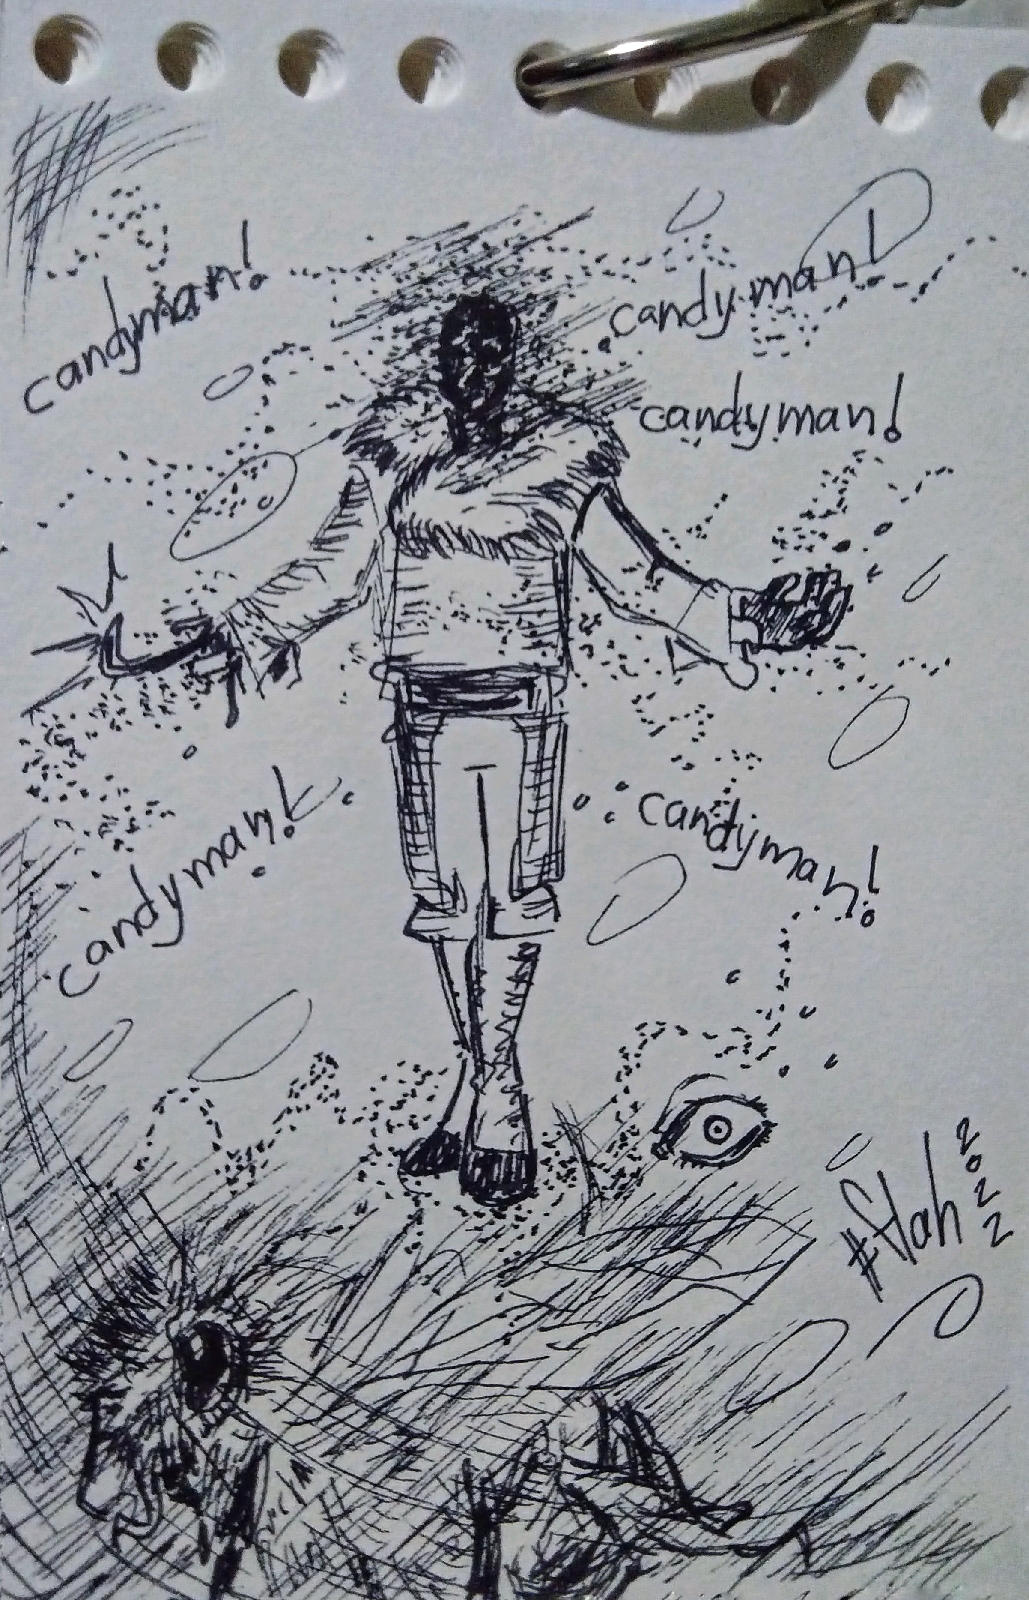 candyman!
candyman!
candyman!
candyman!
candyman!
#flah
2022